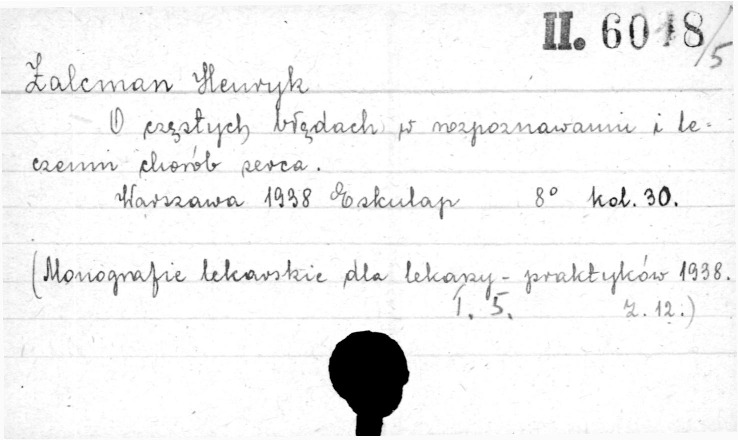 II. 6018/5
Zalcman Henryk
O częstych błędach w rozpoznawaniu i le-
czeniu chorób serca.
Warszawa 1938 Eskulap 8° kol. 30.
(Monografie lekarskie dla lekarzy - praktyków 1938.
T. 5. Z. 12.)